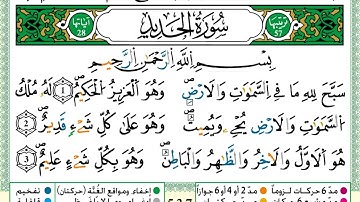 ترتيبها 57
سُورَةُ الْحَدِيدِ
آياتها 28
بِسْمِ اللَّهِ الرَّحْمَٰنِ الرَّحِيمِ
سَبَّحَ لِلَّهِ مَا فِي السَّمَاوَاتِ وَالْأَرْضِ ۖ وَهُوَ الْعَزِيزُ الْحَكِيمُ ۝1 لَهُ مُلْكُ
السَّمَاوَاتِ وَالْأَرْضِ ۖ يُحْيِي وَيُمِيتُ ۖ وَهُوَ عَلَىٰ كُلِّ شَيْءٍ قَدِيرٌ ۝2
هُوَ الْأَوَّلُ وَالْآخِرُ وَالظَّاهِرُ وَالْبَاطِنُ ۖ وَهُوَ بِكُلِّ شَيْءٍ عَلِيمٌ ۝3
مدّ 6 حركات لزوماً مدّ 2 أو 4 أو 6 جوازاً إخفاء ومواقع الغُنَّة (حركتان) تفخيم